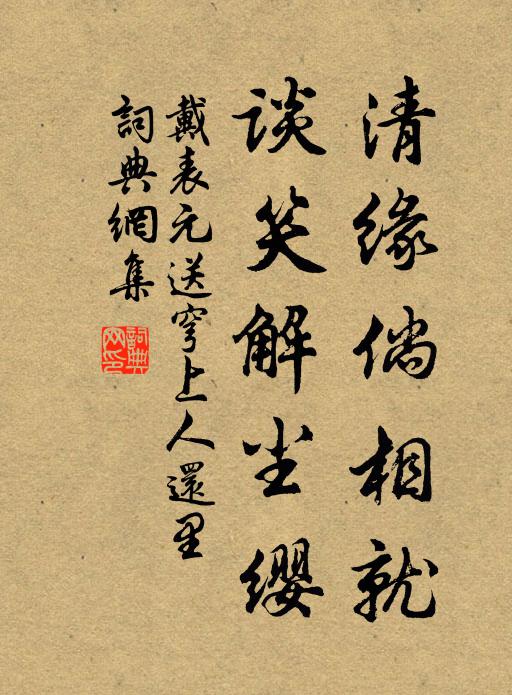 清缘倘相就
谈笑解尘缨
戴表元送穹上人還里
詞典網集
詞典网印